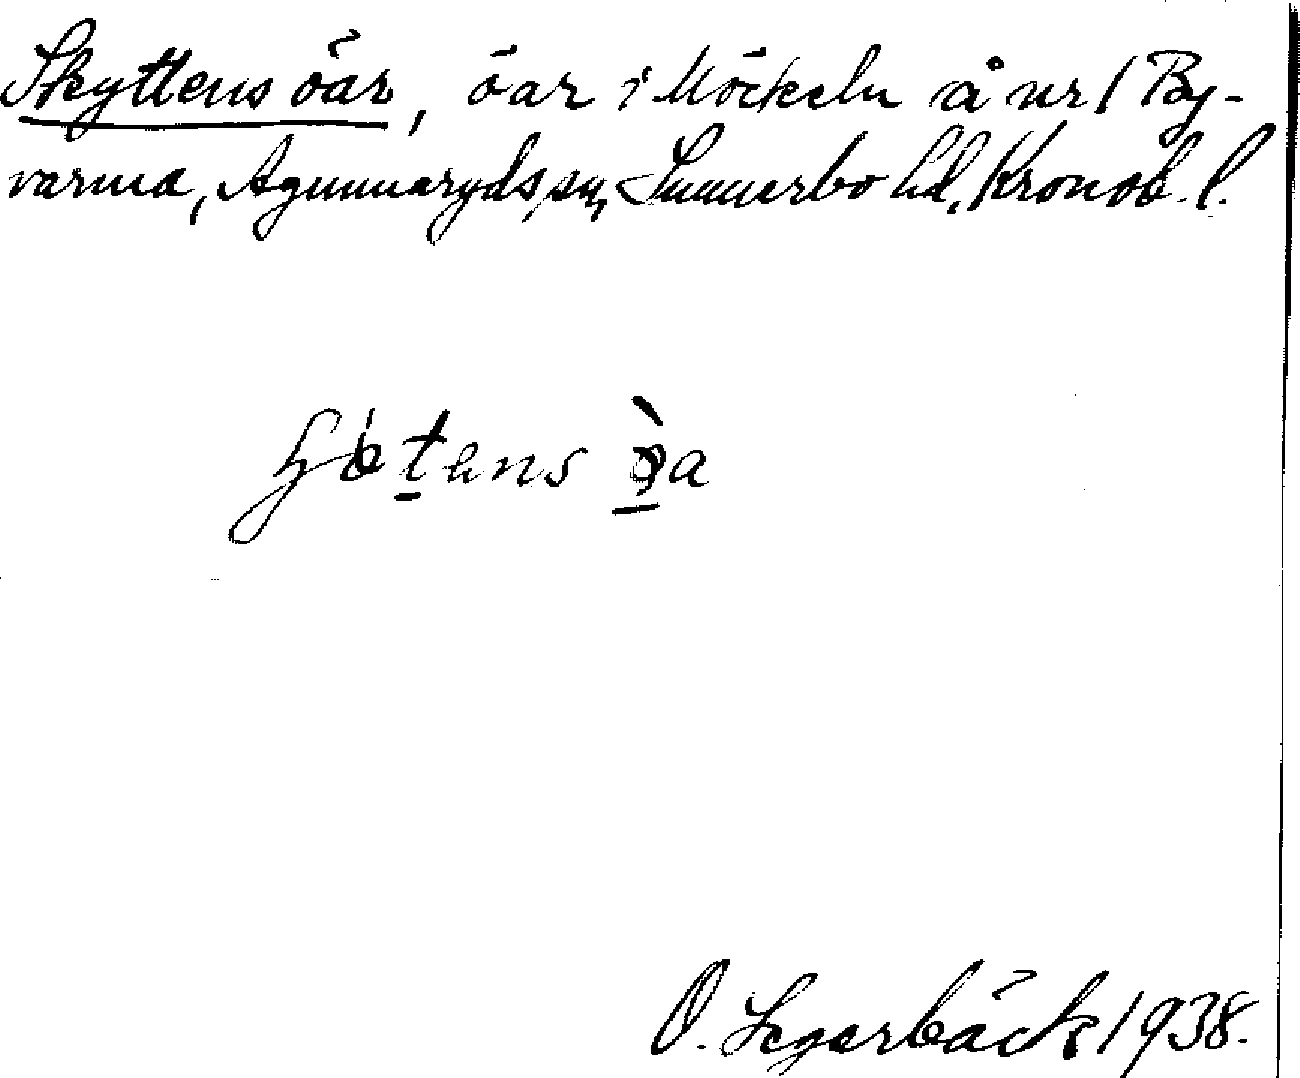 Skyttens öar, öar i Möckeln å nr 1 By-
varma, Agunnaryds sn, Sunnerbo hd, Kronob. l.
O. Segerbäck 1938.